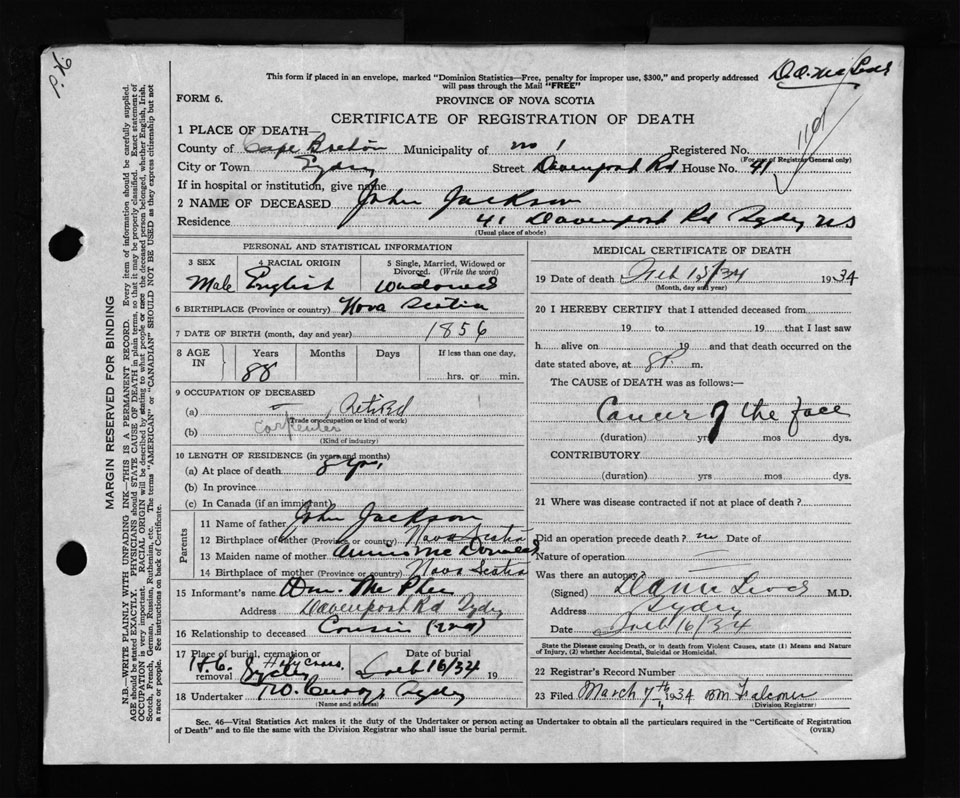 P. 76
This form if placed in an envelope, marked "Dominion Statistics—Free, penalty for improper use, $300," and properly addressed
will pass through the Mail "FREE"
FORM 6.
PROVINCE OF NOVA SCOTIA
CERTIFICATE OF REGISTRATION OF DEATH
1 PLACE OF DEATH—
County of Cape Breton Municipality of Registered No.
(For use of Registrar General only)
City or Town Sydney Street Davenport Rd House No. 41
If in hospital or institution, give name
2 NAME OF DECEASED John Jackson
Residence 41 Davenport Rd Sydney NS
(Usual place of abode)
MARGIN RESERVED FOR BINDING
N.B.—WRITE PLAINLY WITH UNFADING INK—THIS IS A PERMANENT RECORD. Every item of information should be carefully supplied.
AGE should be stated EXACTLY. PHYSICIANS should STATE CAUSE OF DEATH in plain terms, so that it may be properly classified. Exact statement of
OCCUPATION is very important. RACIAL ORIGIN will be described by stating to what people or race the deceased person belonged, whether English, Irish,
Scotch, French, German, Russian, Ruthenian, etc. The terms "AMERICAN" or "CANADIAN" SHOULD NOT BE USED as they express citizenship but not
a race or people. See instructions on back of Certificate.
PERSONAL AND STATISTICAL INFORMATION
3 SEX
4 RACIAL ORIGIN
5 Single, Married, Widowed or
Divorced. (Write the word)
Male English Widowed
6 BIRTHPLACE (Province or country) Nova Scotia
7 DATE OF BIRTH (month, day and year) 1856
8 AGE
IN
Years Months Days If less than one day,
88 hrs. or min.
9 OCCUPATION OF DECEASED
(a) Retired
Trade or occupation or kind of work)
(b) Carpenter
(Kind of industry)
10 LENGTH OF RESIDENCE (in years and months)
(a) At place of death 8 yrs,
(b) In province
(c) In Canada (if an immigrant)
Parents
11 Name of father John Jackson
12 Birthplace of father (Province or country) Nova Scotia
13 Maiden name of mother Annie McDonald
14 Birthplace of mother (Province or country) Nova Scotia
15 Informant's name Wm. McPhee
Address Davenport Rd Sydney
16 Relationship to deceased Cousin (2nd)
17 Place of burial, cremation or Date of burial
removal Holy Cross Sydney Feb 16/34 19
18 Undertaker Sydney
(Name and address)
MEDICAL CERTIFICATE OF DEATH
19 Date of death Feb 1934
(Month, day and year)
20 I HEREBY CERTIFY that I attended deceased from
19 to 19 that I last saw
h alive on 19 and that death occurred on the
date stated above, at 8 P. m.
The CAUSE of DEATH was as follows:—
Cancer of the face
(duration) yrs mos dys.
CONTRIBUTORY
(duration) yrs mos dys.
21 Where was disease contracted if not at place of death?
Did an operation precede death? no Date of
Nature of operation
Was there an autopsy?
(Signed) M.D.
Address Sydney
Date Feb 16/34
State the Disease causing Death, or in death from Violent Causes, state (1) Means and
Nature of Injury, (2) whether Accidental, Suicidal or Homicidal.
22 Registrar's Record Number
23 Filed March 7th 1934
(Division Registrar)
Sec. 46—Vital Statistics Act makes it the duty of the Undertaker or person acting as Undertaker to obtain all the particulars required in the "Certificate of Registration
of Death" and to file the same with the Division Registrar who shall issue the burial permit.
(OVER)